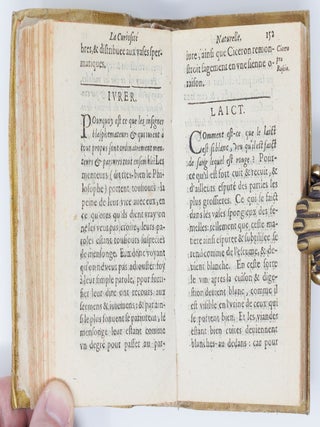 La Curiosité
bres, & distribuee aux vases sper-
matiques.
IVRER.
Pourquoy est-ce que les insignes
blasphemateurs & qui iurent à
tout propos sont ordinairement men-
teurs & pariures tout ensemble? Les
menteurs (dit tres-bien le Phi-
losophe) portent tousiours la
peine de leur vice auec eux, en
ce qu'ores qu'ils dient vray on
ne les veut pas croire, leurs pa-
roles estans tousiours suspectes
de mensonge. Eux donc voyant
qu'on ne veut pas adiouster foy
à leur simple parole, pour iusti-
fier leur dire ont recours aux
sermens & iuremens; & par ain-
si le plus souuent se pariurent; le
mensonge leur estant comme
vn degré pour passer au par-
Naturelle. 152
iure, ainsi que Ciceron remon-
stroit sagement en vne sienne o-
raison.
Cicero
pro
Roscio.
LAICT.
Comment est-ce que le laict
est si blanc, veu qu'il est faict
de sang lequel est rouge? Pour-
ce qu'il est fort cuit & recuit, &
d'ailleurs espuré des parties les
plus grossieres. Ce qui se faict
dans les vases spongieux des fe-
melles: tellement que cette ma-
tiere ainsi puree & subtilisee se
rend comme de l'escume, & de-
uient blanche. En ceste sorte
le vin apres la cuisson & dige-
stion deuient blanc, comme il
est visible en l'vrine de ceux qui
se portent bien. Et les viandes
estant bien cuites deuiennent
blanches au dedans: car pour